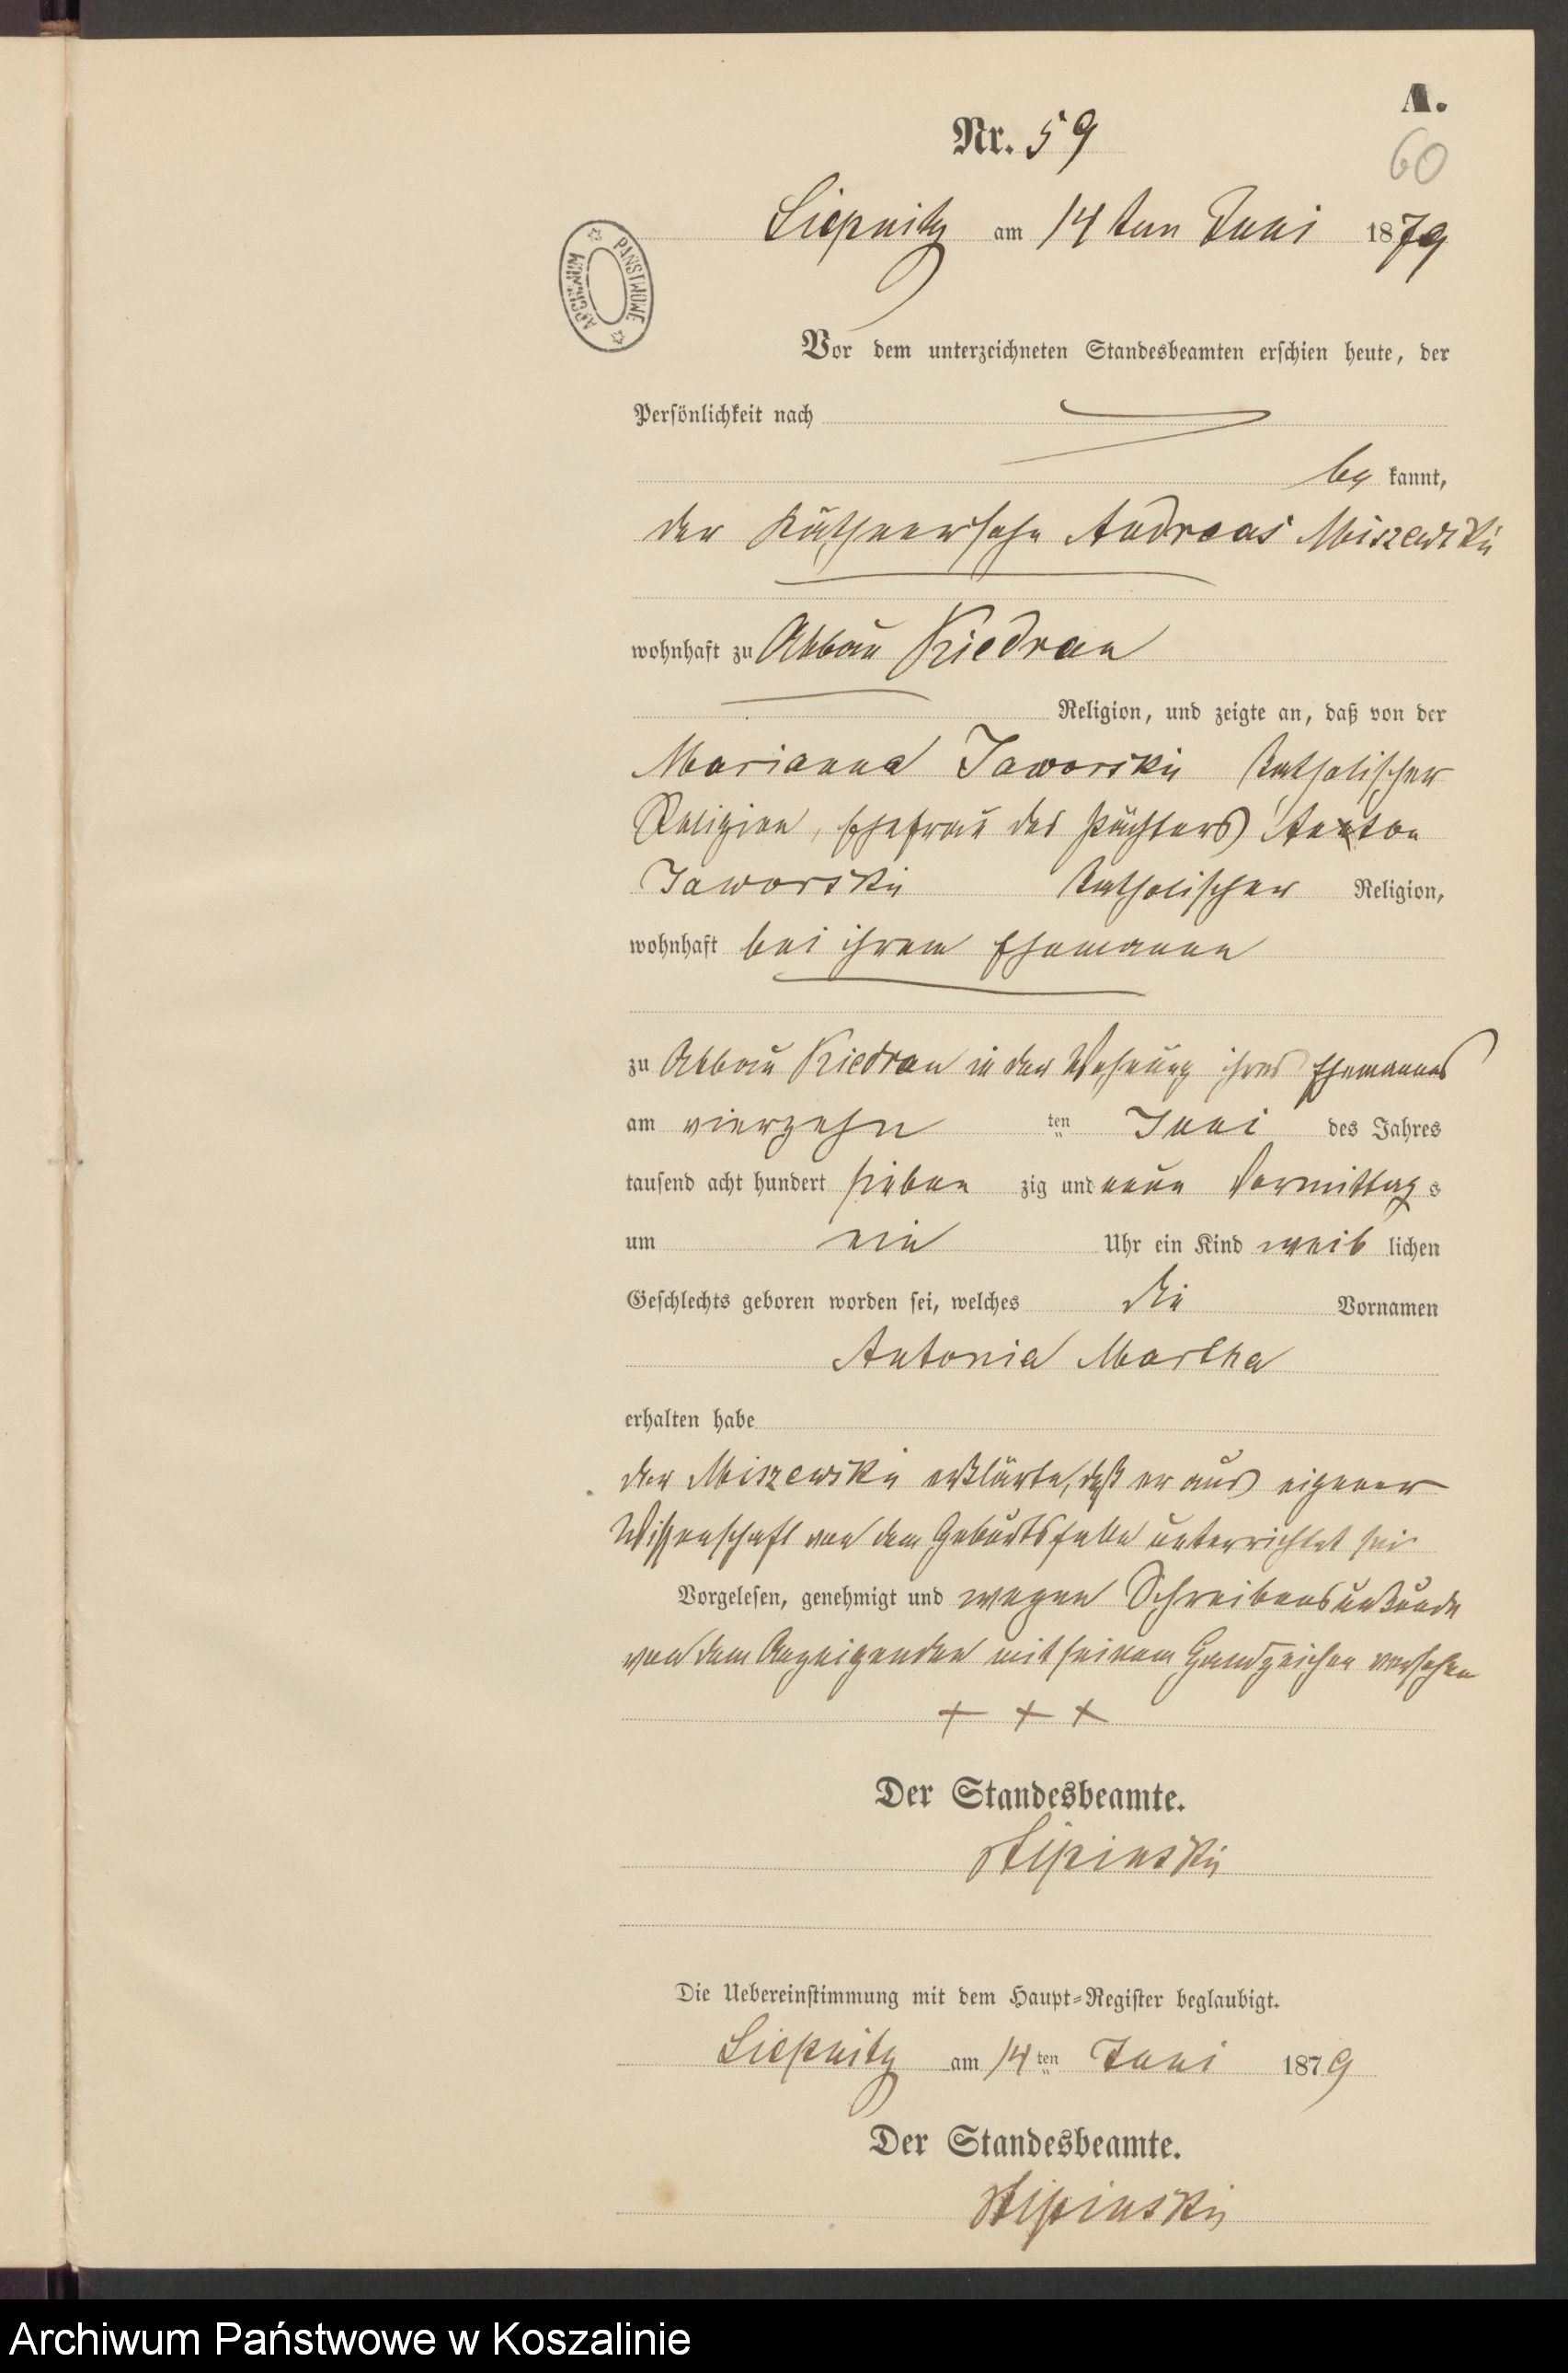 A.
Nr. 59
60
Liepnitz am 14ten Juni 1879
ARCHIWUM PAŃSTWOWE
Vor dem unterzeichneten Standesbeamten erschien heute, der
Persönlichkeit nach
be kannt,
der Käthnersohn Andreas Miszewski
wohnhaft zu Abbau Kiedrau
Religion, und zeigte an, daß von der
Marianna Jaworski katholischer
Religion, Ehefrau des Pächters Anton
Jaworski katholischer Religion,
wohnhaft bei ihrem Ehemanne
zu Abbau Kiedrau in der Wohnung ihres Ehemannes
am vierzehn ten Juni des Jahres
tausend acht hundert sieben zig und neun Vormittag s
um ein Uhr ein Kind weib lichen
Geschlechts geboren worden sei, welches die Vornamen
Antonia Martha
erhalten habe
der Miszewski erklärte, daß er aus eigener
Wissenschaft von dem Geburtsfalle unterrichtet sei
Vorgelesen, genehmigt und wegen Schreibensunkunde
von dem Anzeigenden mit seinem Handzeichen versehen
+ + +
Der Standesbeamte.
Lipinski
Die Uebereinstimmung mit dem Haupt-Register beglaubigt.
Liepnitz am 14 ten Juni 1879
Der Standesbeamte.
Lipinski
Archiwum Państwowe w Koszalinie